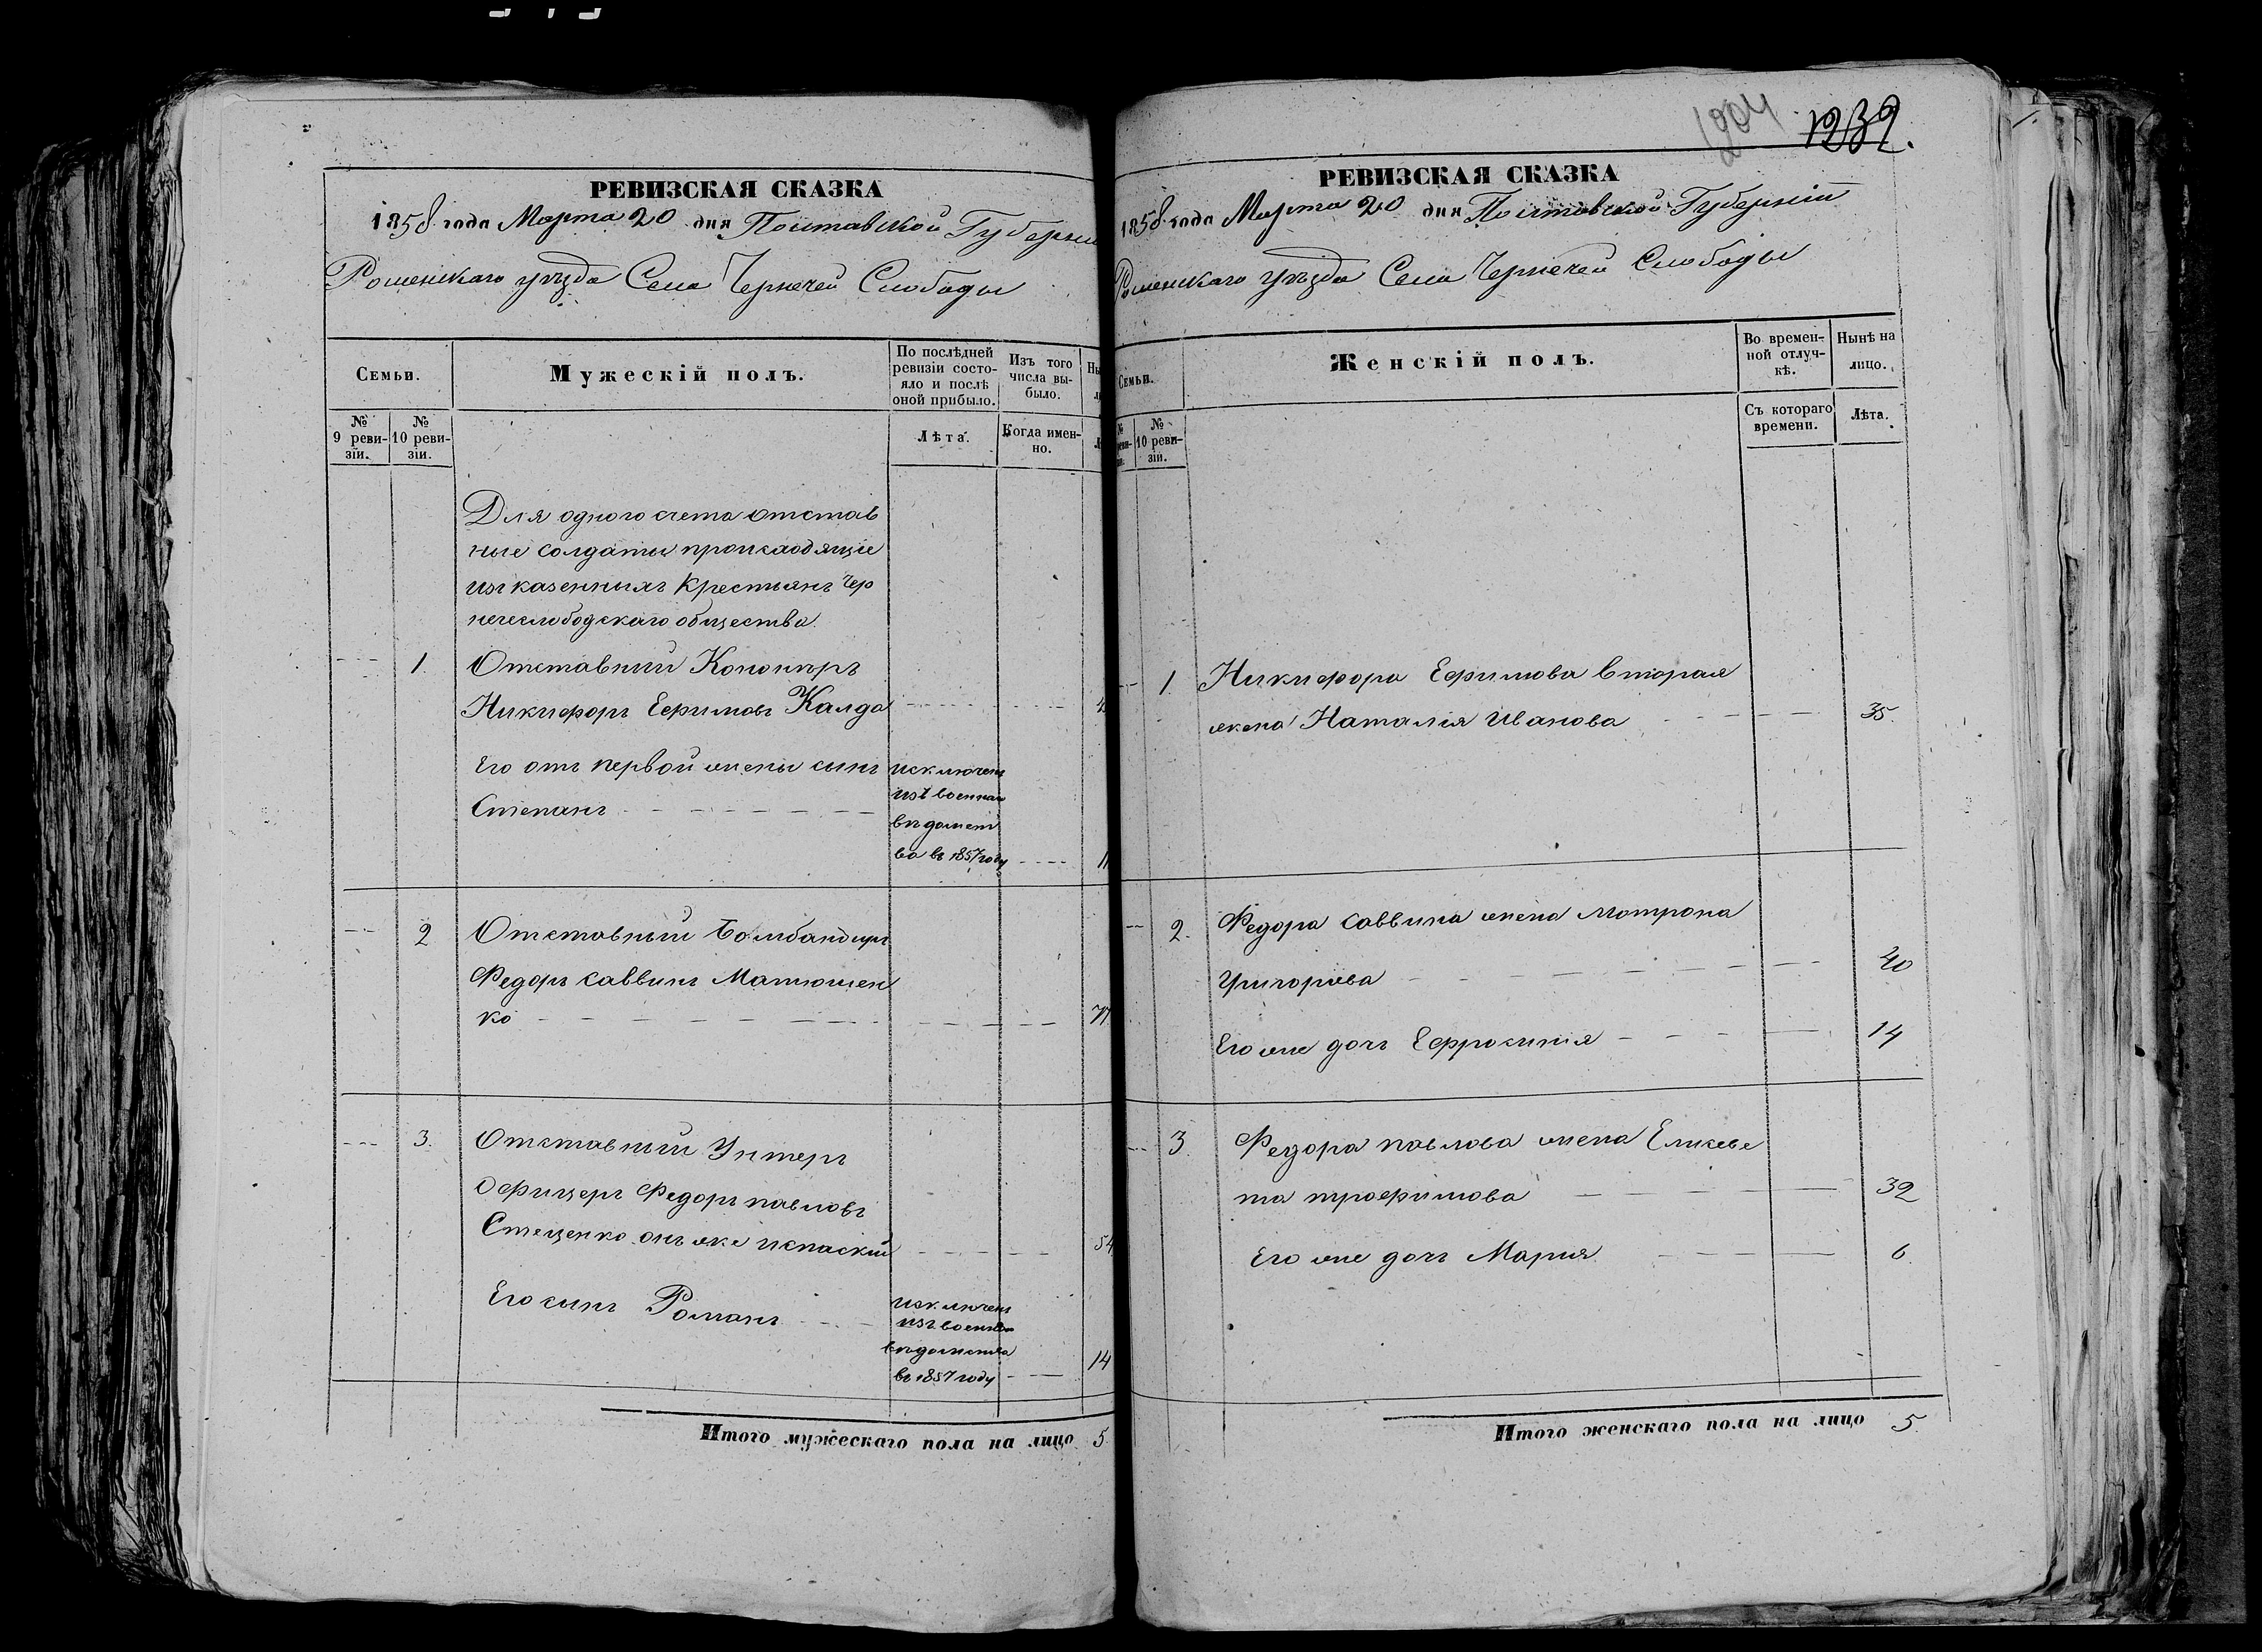 1004
1232.
РЕВИЗСКАЯ СКАЗКА
1858 года Марта 20 дня Полтавской Губерніи
Роменскаго уѣзда Села Чернечей Слободы
Семьи.
Мужескій полъ.
По послѣдней ревизіи состо-
яло и послѣ
оной прибыло.
Изъ того
числа вы-
было.
№
9 реви-
зіи.
№
10 реви-
зіи.
Лѣта.
Когда имен-
но.
Для одного счета отстав
ные солдаты происходящіе
изъ казенныхъ крестьянъ Чер
нечеслободскаго общества.
1. Отставный Кононѣръ
Никифоръ Ефимовъ Калда
Его отъ первой жены сынъ
Степанъ
исключенъ
изъ военнаго
вѣдомст
ва въ 1857 году 11
2 Отставный Бомбандиръ
Федоръ Саввинъ Матюшен
ко
3. Отставный Унтеръ
Офицеръ Федоръ павловъ
Стеценко онъ же испаскій 54
Его сынъ Романъ
исключенъ
изъ военнаго
вѣдомства
въ 1857 году 14
Итого мужескаго пола на лицо 5.
РЕВИЗСКАЯ СКАЗКА
1858 года Марта 20 дня Полтавской Губерніи
Роменскаго уѣзда Села Чернечей Слободы
Семьи.
Женскій полъ.
Во времен-
ной отлуч-
кѣ.
Нынѣ на
лицо.
№
10 реви-
зіи.
Съ котораго
времени.
Лѣта.
1. Никифора Ефимова вторая
жена Наталія Иванова 35.
2. Федора Саввина жена Мотрона
Григоріева 40
Его же дочь Ефросинія 14
3. Федора павлова жена Елисаве
та трофимова 32
Его же дочь Марія 6.
Итого женскаго пола на лицо 5.